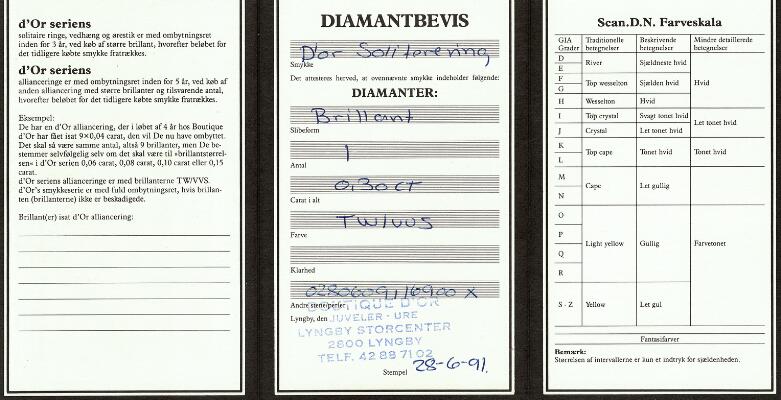 d'Or seriens
solitaire ringe, vedhæng og ørestik er med ombytningsret
inden for 3 år, ved køb af større brillant, hvorefter beløbet for
det tidligere købte smykke fratrækkes.
d'Or seriens
allianceringe er med ombytningsret inden for 5 år, ved køb af
anden alliancering med større brillanter og tilsvarende antal,
hvorefter beløbet for det tidligere købte smykke fratrækkes.
Eksempel:
De har en d'Or alliancering, der i løbet af 4 år hos Boutique
d'Or har fået isat 9×0,04 carat, den vil De nu have ombyttet.
Det skal så være samme antal, altså 9 brillanter, men De be-
stemmer selvfølgelig selv om det skal være til »brillantstørrel-
sen« i d'Or serien 0,06 carat, 0,08 carat, 0,10 carat eller 0,15
carat.
d'Or seriens allianceringe er med brillanterne TW/VVS.
d'Or's smykkeserie er med fuld ombytningsret, hvis brillan-
ten (brillanterne) ikke er beskadigede.
Brillant(er) isat d'Or alliancering:
DIAMANTBEVIS
D'or Soliterering
Smykke
Det attesteres herved, at ovennævnte smykke indeholder følgende:
DIAMANTER:
Brillant
Slibeform
1
Antal
0,30 ct
Carat i alt
TW/VVS
Farve
Klarhed
Andre stene/perler
BOUTIQUE D'OR
Lyngby, den JUVELER - URE
LYNGBY STORCENTER
2800 LYNGBY
TELF. 42 88 71 02
Stempel 28-6-91.
Scan.D.N. Farveskala
GIA Grader Traditionelle betegnelser Beskrivende betegnelser Mindre detaillerede betegnelser
D
E
River Sjældneste hvid
F
G
Top wesselton Sjælden hvid Hvid
H Wesselton Hvid
I Top crystal Svagt tonet hvid
J Crystal Let tonet hvid
Let tonet hvid
K
L
Top cape Tonet hvid Tonet hvid
M
N
Cape Let gullig
O
P
Q
R
Light yellow Gullig Farvetonet
S - Z Yellow Let gul
Fantasifarver
Bemærk:
Størrelsen af intervallerne er kun et indtryk for sjældenheden.